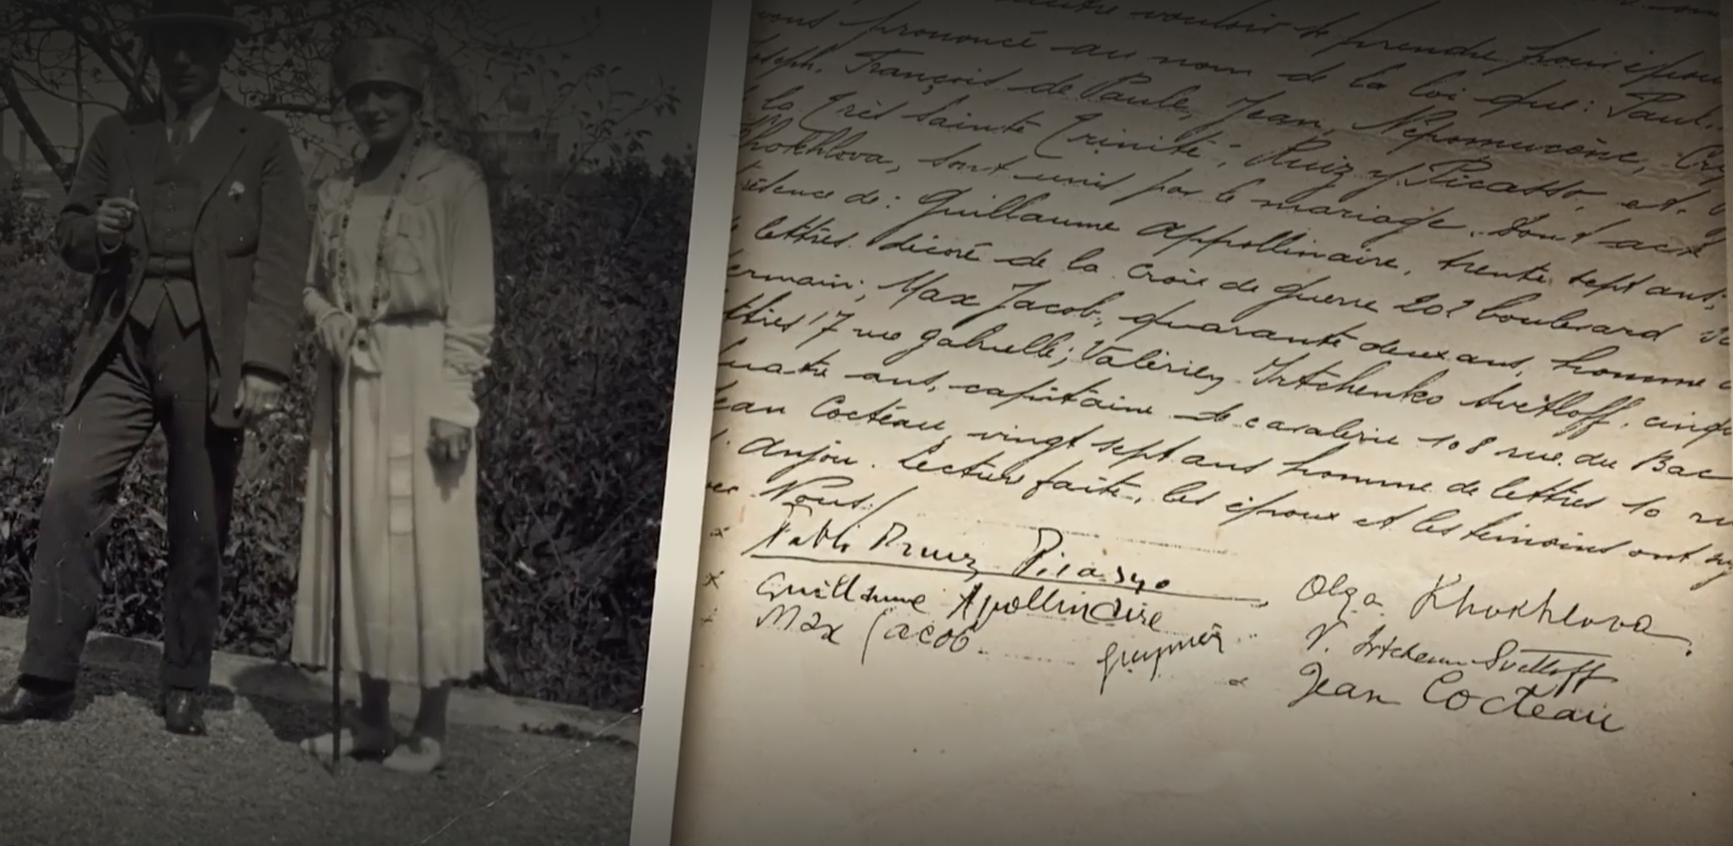 vouloir prendre pour épou
vous prononcé au nom de la loi que: Paul,
François de Paule, Jean, Népomucène, Cr
la Très Sainte Trinité; Ruiz y Picasso, et
Khokhlova, sont unis par le mariage. Dont acte
de: Guillaume Appollinaire, trente sept ans,
lettres. décoré de la Croix de guerre 202 boulevard
ermain; Max Jacob, quarante deux ans, homme
17 rue Gabrielle; Valérien Irtchenko Svètloff, cinqu
uatre ans, capitaine de cavalerie 108 rue du Bac
ean Cocteau, vingt sept ans homme de lettres 10
d'Anjou. Lecture faite, les époux et les témoins ont
Nous/
Pablo Ruiz Picasso
Olga Khokhlova
Guillaume Apollinaire
V. Svetloff
Max Jacob
Jean Cocteau